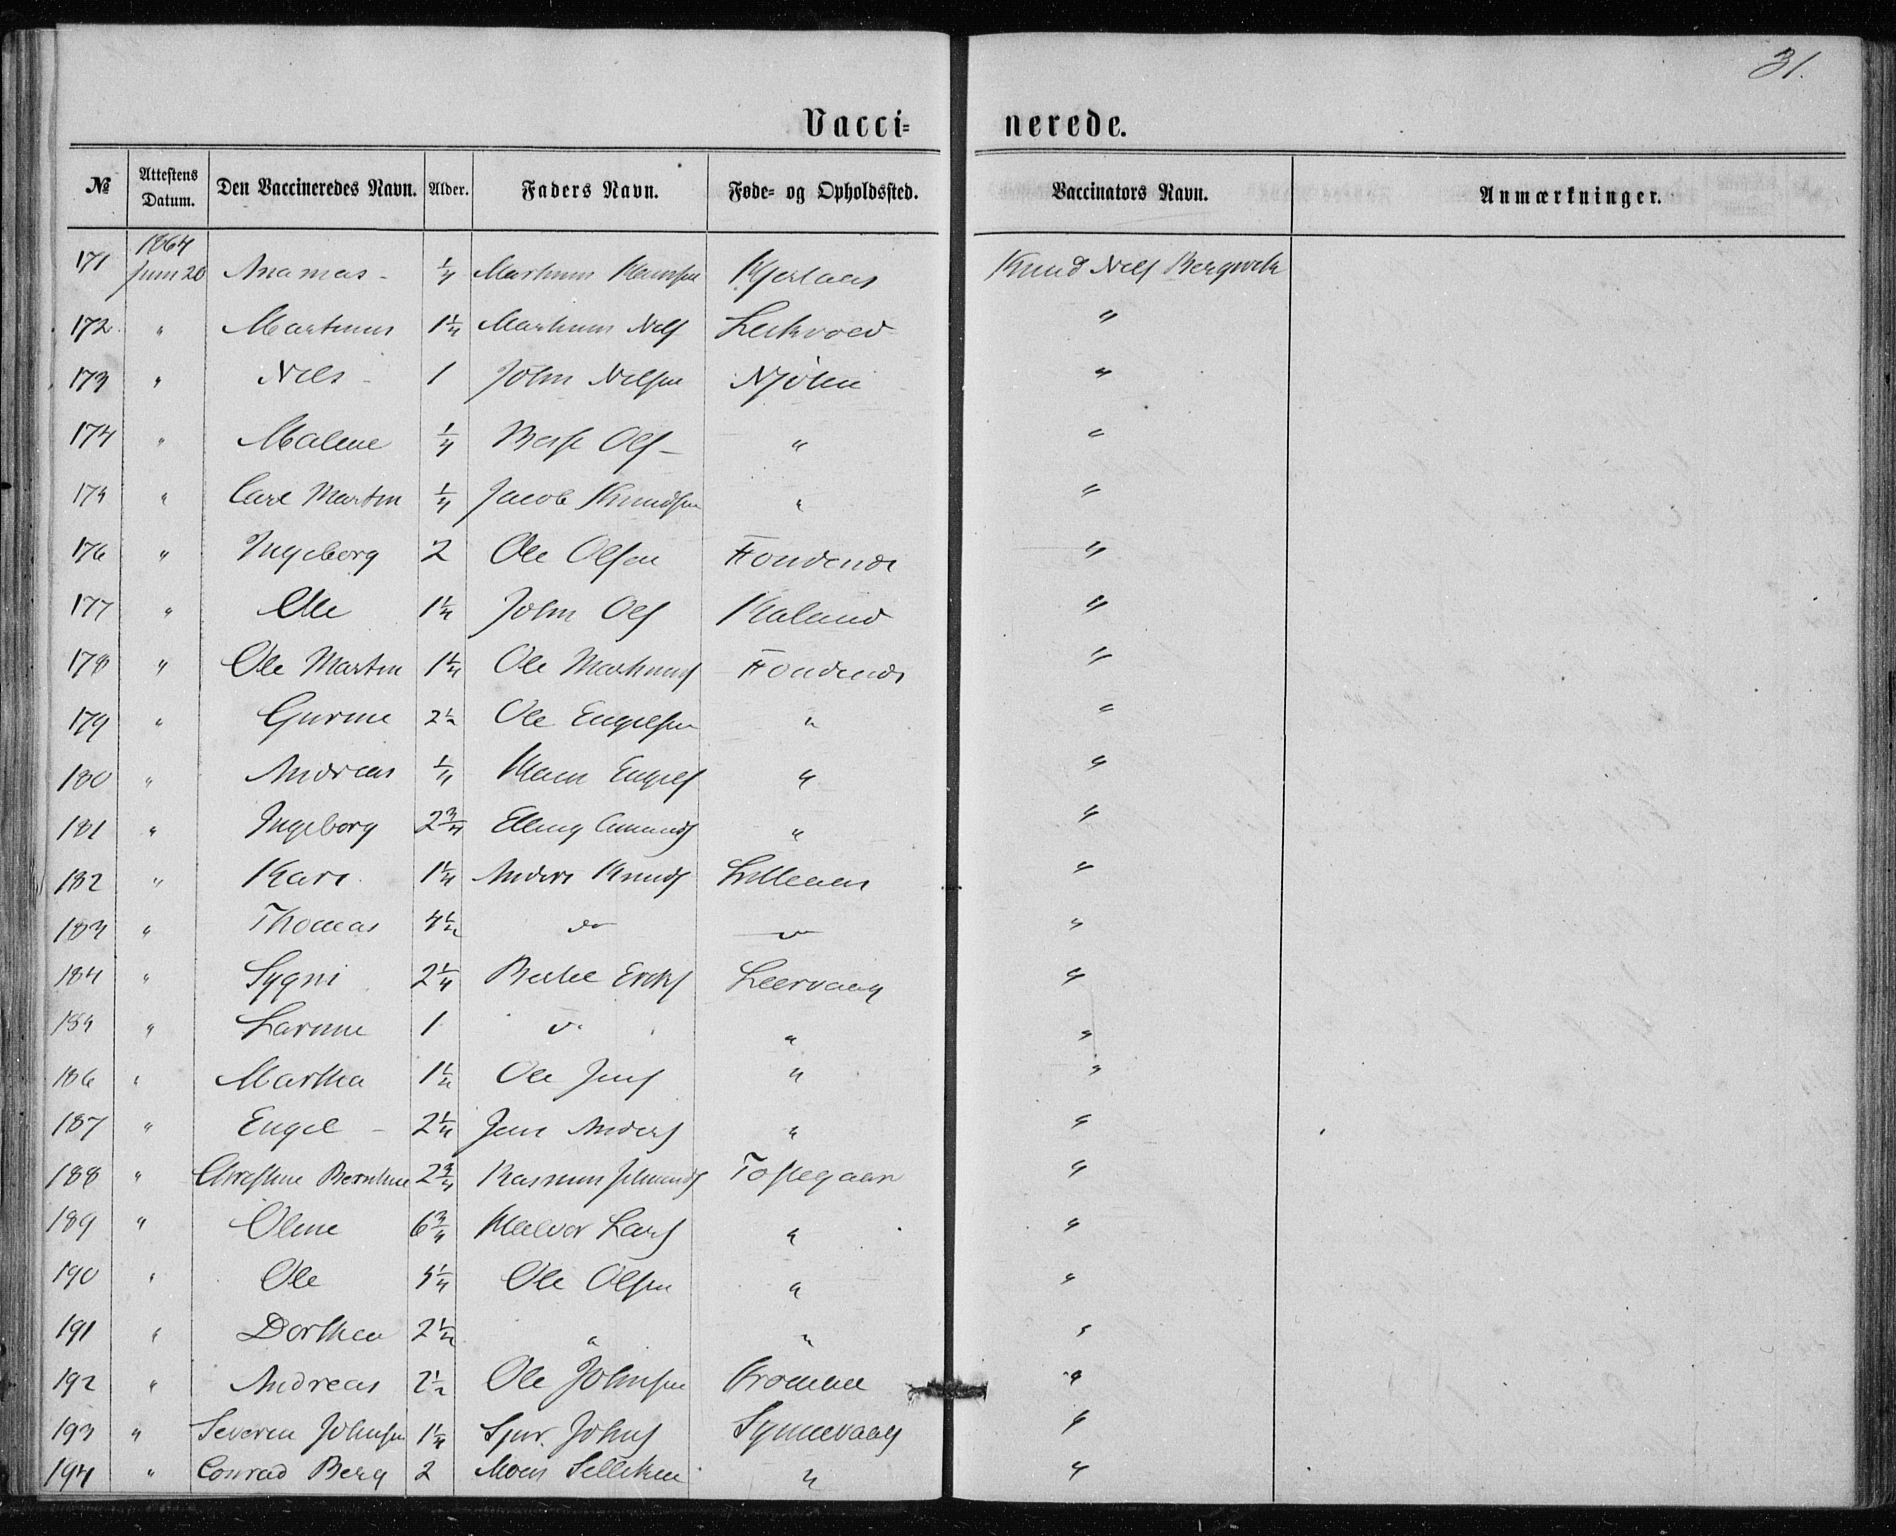 31.
Vacci= nerede.
№ Attestens Datum. Den Vaccineredes Navn. Alder. Faders Navn. Føde- og Opholdssted. Vaccinators Navn. Anmærkninger.
1864
171 Juni 20 Ananias - 1/4 Kjerlaas Knud Nels Bergvik
172 " Martinus 1 1/4 Martinus Nels "
173 " Nels - 1 John Nelsen Njølen "
174 " Malene 1/4 Ols - " "
175 " Carl Martin 1/4 Jacob Knudsen " "
176 " Ingeborg 2 Ole Olsen Fondenes "
177 " Ole 1 1/4 John Ols Kaland "
178 " Ole Martin 1 1/4 Ole Martinus Fondenes "
179 " Gurine 2 1/2 Ole Engelsen " "
180 " Andreas 1/4 Hans Engels " "
181 " Ingeborg 2 3/4 Elling Amunds " "
182 " Kari 1 1/4 Anders Knuds Lilleaas "
183 " Thomas 4 1/2 do do "
184 " Sygni 2 1/4 Bertel Ericks Leervaag "
185 " Larine 1 do " "
186 " Martha 1 1/4 Ole Jens " "
187 " Engel - 2 1/4 Jens Anders " "
188 " Christine Berntine 2 3/4 Rasmus Toftegaar "
189 " Oline 6 3/4 Halvor Lars " "
190 " Ole 5 1/4 Ole Olsen " "
191 " Dorthea 2 1/2 " " "
192 " Andreas 2 1/2 Ole Johnsen "
193 " Severin Johnsen 1 1/4 Sjur Johns Synnevaag "
194 " Conrad Berg 2 Mons " "